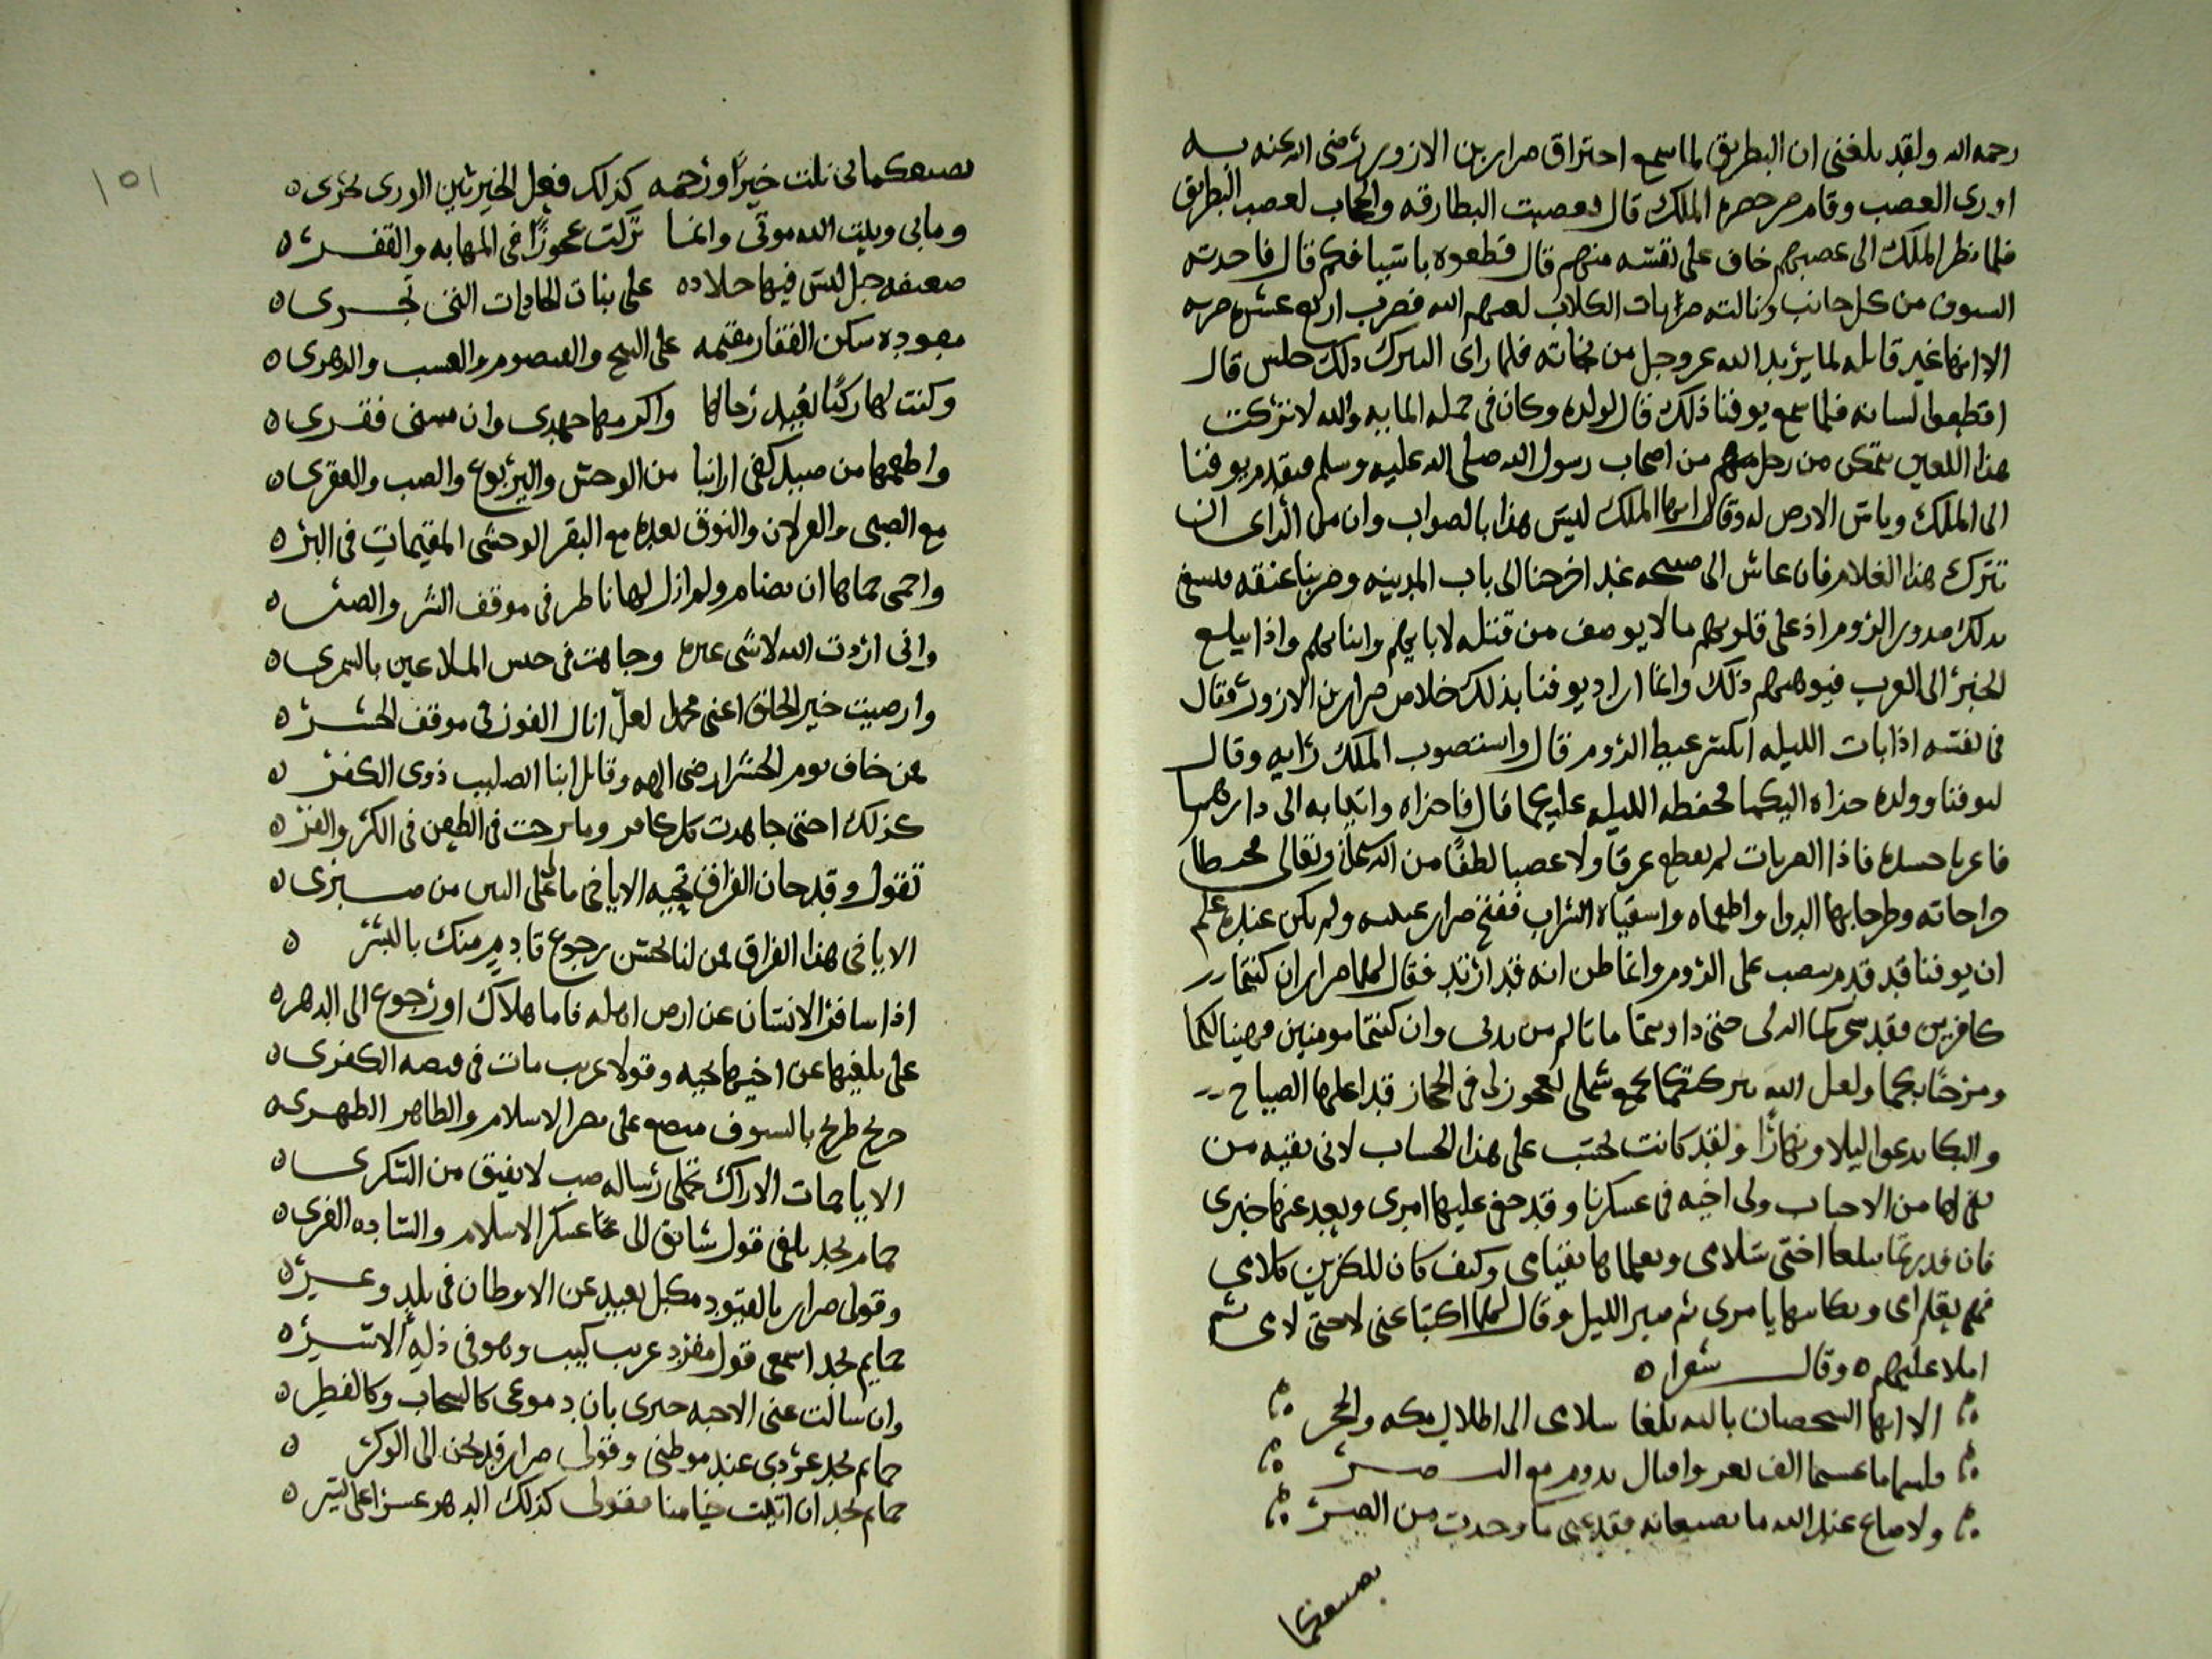 رحمه الله ولقد بلغنى ان البطريق لما سمع احتراق ضرار بن الازور رضى الله عنه به
اورى الغضب وقام من حضرة الملك قال فغضبت البطارقه والحجاب لغضب البطريق
فلما نظر الملك الى غضبهم خاف على نفسه منهم قال قطعوه باسيافكم قال فاخدته
السيوف من كل جانب ونالته ضربات الكلاب لعنهم الله فضرب اربع عشره ضربه
الا انها غير قاتله لما يريد الله عز وجل من نجاته فلما راى البترك ذلك جلس قال
اقطعوا لسانه فلما سمع يوقنا ذلك قال لولده وكان فى جمله المايه والله لا نتركت
هذا اللعين يتمكن من رجل منهم من اصحاب رسول الله صلى الله عليه وسلم فتقدم يوقنا
الى الملك وباس الارض له وقال ايها الملك ليس هذا بالصواب وان من الراى ان
تترك هذا الغلام فان عاش الى صبيحه غد اخرجنا الى باب المدينه وضربنا عنقه فيشفى
بدلك صدور الروم اذ على قلوبهم ما لا يوصف من قتله لابايهم وابنايهم واذا بلغ
الخبر الى العرب فيوهنهم ذلك وانما اراد يوقنا بذلك خلاص ضرار بن الازور فقال
فى نفسه اذا بات الليله انكسر غيظ الروم قال واستصوب الملك رايه وقال
ليوقنا وولده خداه اليكما محفظه الليله عليكما قال فاخداه واتيا به الى دارهما
فاعريا جسده فاذا الضربات لم تقطع عرقا ولا عصبا لطفا من الله تعالى فخيطا
جراحاته وطرحا بها الدوا واطعماه واسقياه الشراب ففتح ضرار عينيه ولم يكن عنده علم
ان يوقنا قد قدم ينصب على الروم وانما ظن انه قد ارتد فقال لهما ضرار ان كنتما
كافرين فقد سخركما الله لى حتى داويتما ما تالم من بدنى وان كنتما مومنين فهنيا لكما
ومرحبا بكما ولعل الله ببركتكما يجمع شملى لعجوز لى فى الحجاز قد اعلمها الصياح
والبكا يدعوا ليلا ونهارا ولقد كانت تحتسب على هذا الحساب لانى بقيه من
بقى لها من الاحباب ولى اخيه فى عسكرنا وقد خفى عليها امرى وبعد عنها خبرى
فان قدرتما بلغا اختى سلامى وتعلماها بقيامى وكيف كان للكفرين كلامى
املا عليهم ه وقال شعرا ه
الا ايها الشخصان بالله بلغا سلامى الى اطلال مكه والحجر
ولا ضاع عند الله ما تصنعانه فقد عنى ما وجدت من الضر
بصنعكما
بصنعكما لى نلت خيرا ورحمه كذلك فعل الخير بين الورى يجرى ه
وما بى وبيت الله موتى وانما تركت عجوزا فى المهابه والقفر ه
ضعيفه جبل ليس فيها جلاده على بنات الحادثات التى تجرى ه
معوده سكن القفار مقيمه على الشيح والقيصوم والعشب والدهرى ه
وكنت لها ركنا لفيد رجالها واكرمها جهدى وان مسنى فقرى ه
واطعمها من صيد كفى ارانبا من الوحش واليربوع والضب والعفرى ه
مع الضبى والغزلان والنوق بعده مع البقر الوحشى المقيمات فى البر ه
واحمى حماها ان تضام ولم ازل لها ناظر فى موقف الشر والضر ه
وانى اردت الله لا شى غيره وجاهدت فى جيش الملاعين بالسمرى ه
وارضيت خير الخلق اعنى محمد لعل انال الفوز فى موقف الحشر ه
فمن خاف يوم الحشر ارضى الهه وقاتل ابنا الصليب ذوى الكفر ه
كذلك اختى جاهدت كل كافر وما برحت فى الطعن فى الكر والفر ه
تقول وقد حان الفراق تحيه الا يا اخى ما لى على البين من صبرى ه
الا يا اخى هذا الفراق فمن لنا بحسن رجوع قادم منك بالبشر ه
اذا سافر الانسان عن ارض اهله فاما هلاك او رجوع الى الدهر ه
على بلغيها عن اخيها تحيه وقولا غريب مات فى قبضه الكفرى ه
جريح طريح بالسيوف مبضع على نصر الاسلام والطاهر الطهرى ه
الا يا حمامات الاراك تحملى رساله صب لا يفيق من السكرى ه
حمام نجد بلغى قول شايق الى عسكر الاسلام والساده الغرى ه
وقولى ضرار بالقيود مكبل بعيد عن الاوطان فى بلد وعر ه
حمايم نجد اسمعى قول مفرد غريب كييب وهو فى ذله الاسر ه
وان سالت عنى الاحبه خبرى بان دموعى كالسحاب وكالقطر ه
حمايم نجد غردى عند موطنى وقولى ضرار قد يحن الى الوكر ه
حمايم نجد ان اتيت خيامنا فقولى كذلك الدهر عسرا على يسر ه
١٥١